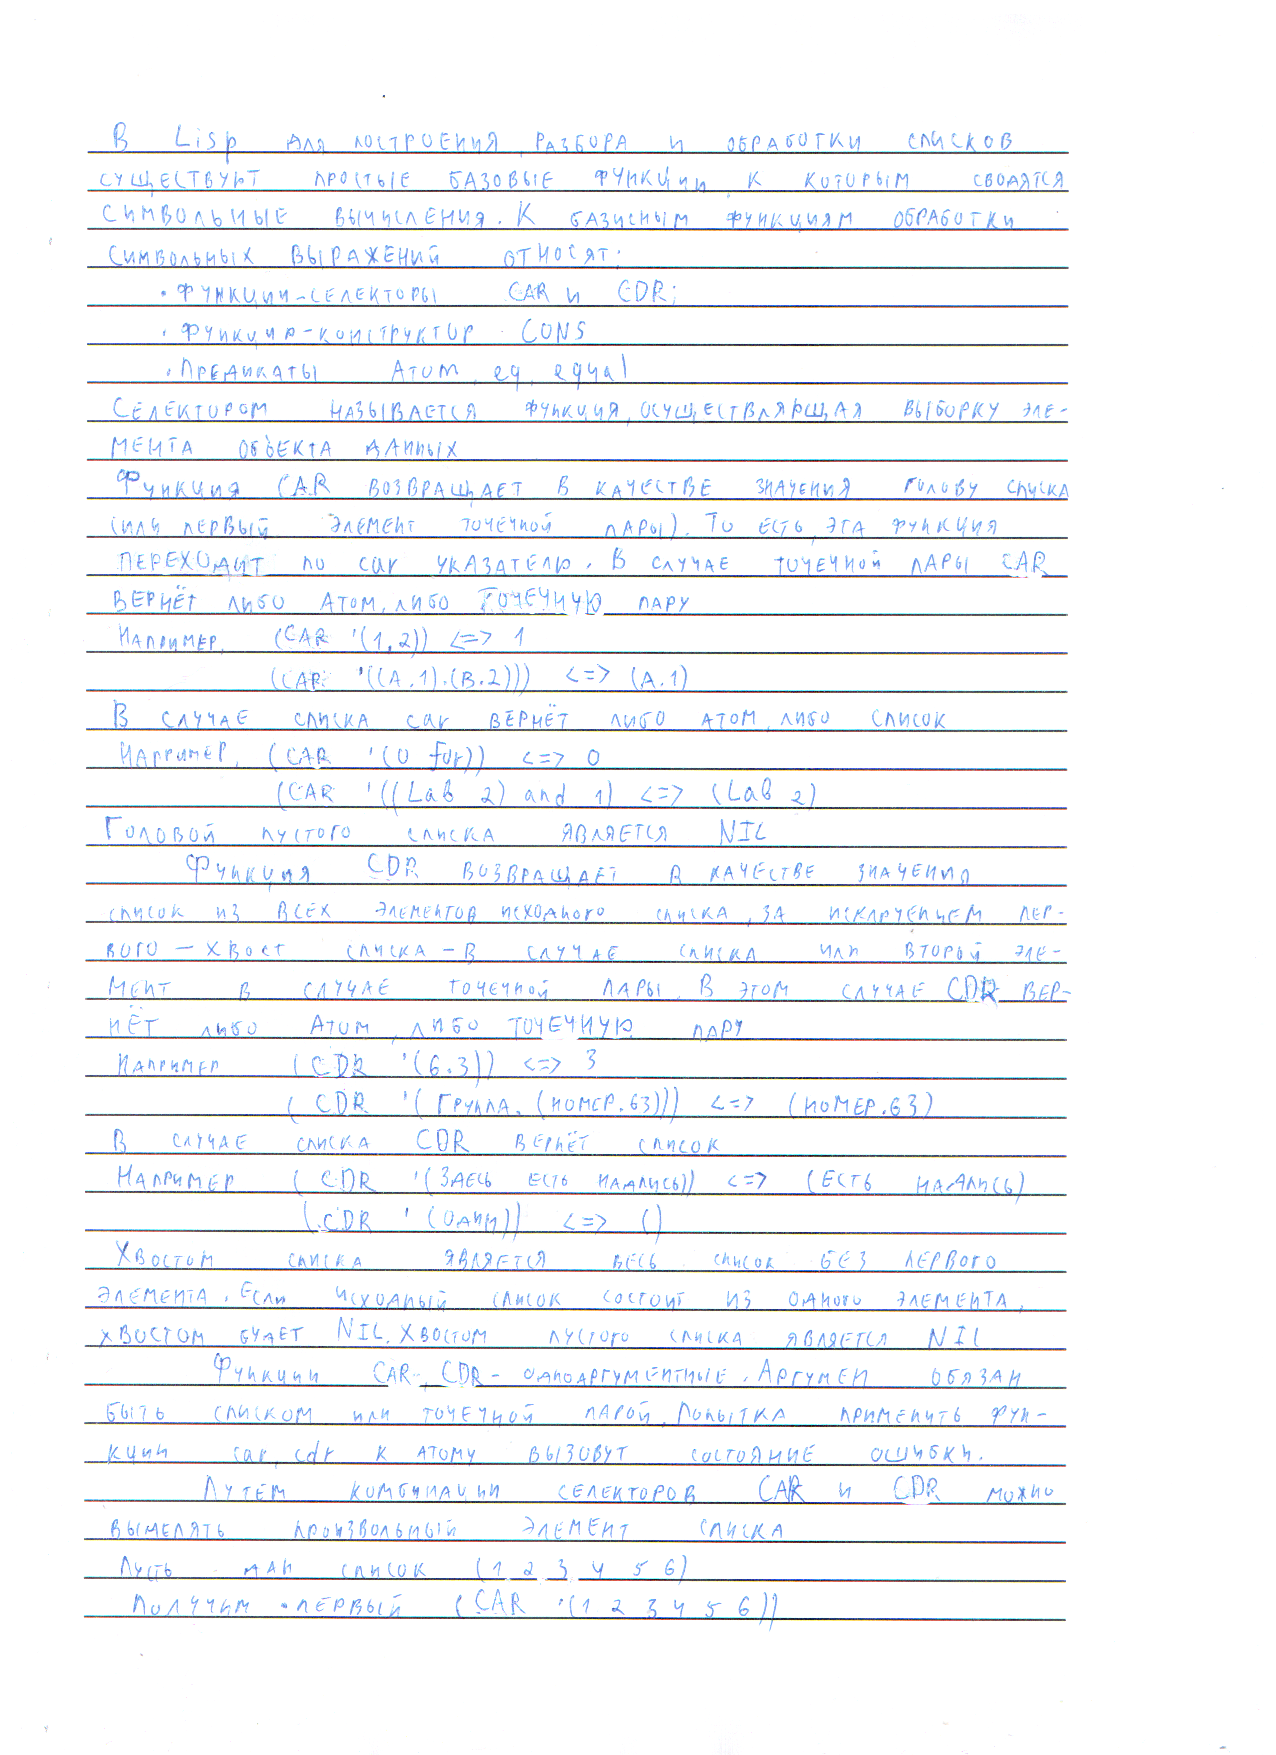 В Lisp для построения, разбора и обработки списков
существуют простые базовые функции, к которым сводятся
символьные вычисления. К базисным функциям обработки
символьных выражений относят:
• функции-селекторы CAR и CDR;
• функция-конструктор CONS
• Предикаты Атом, eq, equal
Селектором называется функция, осуществляющая выборку эле-
мента объекта данных
Функция CAR возвращает в качестве значения голову списка
(или первый элемент точечной пары). То есть, эта функция
переходит по car указателю. В случае точечной пары CAR
вернёт либо атом, либо точечную пару
Например, (CAR '(1.2)) <=> 1
(CAR '((A.1).(B.2))) <=> (A.1)
В случае списка car вернёт либо атом, либо список
Например, (CAR '(0 for)) <=> 0
(CAR '((Lab 2) and 1) <=> (Lab 2)
Головой пустого списка является NIL
Функция CDR возвращает в качестве значения
список из всех элементов исходного списка, за исключением пер-
вого — хвост списка – в случае списка или второй эле-
мент в случае точечной пары. В этом случае CDR вер-
нёт либо атом, либо точечную пару
Например (CDR '(6.3)) <=> 3
(CDR '(Группа. (номер.63))) <=> (номер.63)
В случае списка CDR вернёт список
Например (CDR '(Здесь есть надпись)) <=> (есть надпись)
(CDR '(один)) <=> ()
Хвостом списка является весь список без первого
элемента. Если исходный список состоит из одного элемента,
хвостом будет NIL. Хвостом пустого списка является NIL
Функции CAR, CDR – одноаргументные. Аргумен обязан
быть списком или точечной парой. Попытка применить фун-
кции car, cdr к атому вызовут состояние ошибки.
Путём комбинации селекторов CAR и CDR можно
вымелять произвольный элемент списка
Пусть дан список (1 2 3 4 5 6)
Получим • первый (CAR '(1 2 3 4 5 6))